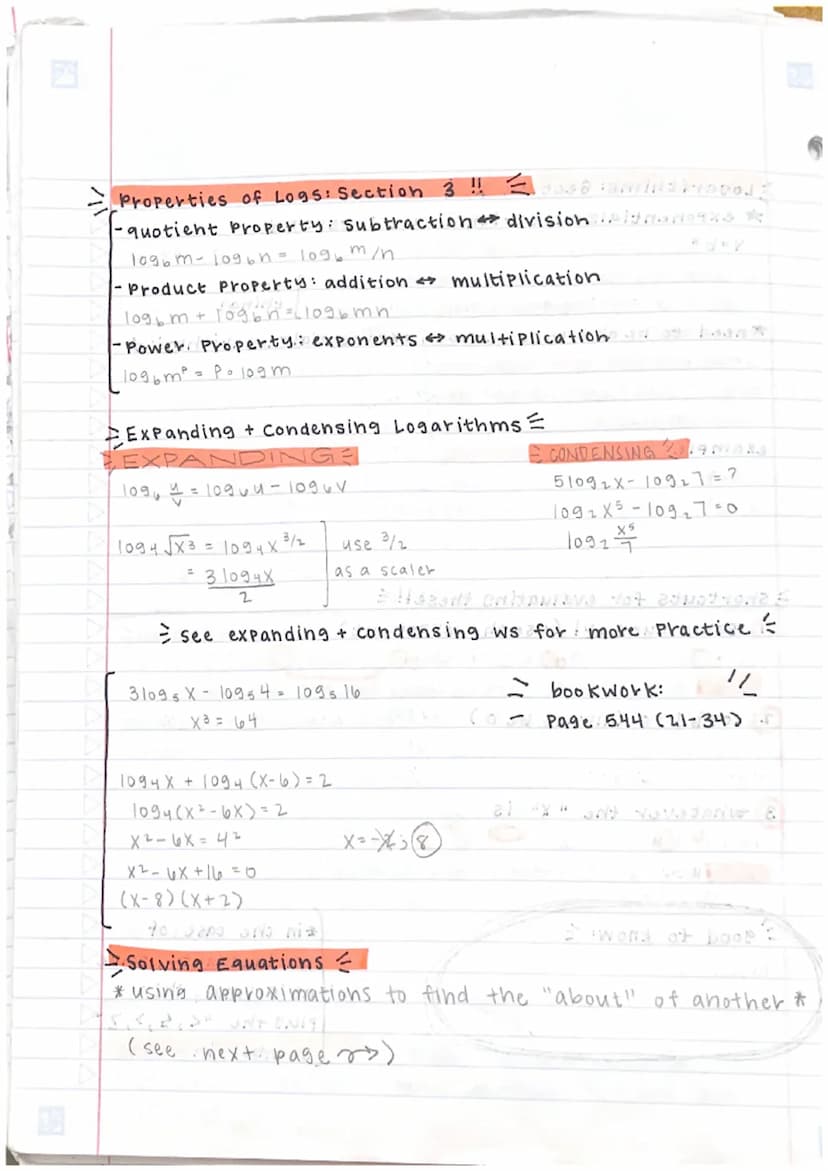 Properties of Logs: Section 3 !!
- quotient Property: subtraction ↔ division
log_b m - log_b n = log_b m/n
- Product Property: addition ↔ multiplication
log_b m + log_b n = log_b mn
- Power Property: exponents ↔ multiplication
log_b m^p = P • log m
Expanding + Condensing Logarithms
EXPANDING
log_b u/v = log_b u - log_b v
log_4 √x^3 = log_4 x^3/2
= 3 log_4 x / 2
use 3/2
as a scaler
CONDENSING
5 log_2 x - log_2 7 = ?
log_2 x^5 - log_2 7 = 0
log_2 x^5/7
see expanding + condensing ws for more Practice
3 log_5 x - log_5 4 = log_5 16
x^3 = 64
bookwork:
Page 544 (21-34)
log_4 x + log_4 (x-6) = 2
log_4 (x^2 - 6x) = 2
x^2 - 6x = 4^2
x = -2, 8
x^2 - 6x + 16 = 0
(x-8)(x+2)
Solving Equations
* using approximations to find the "about" of another *
(see next page →)